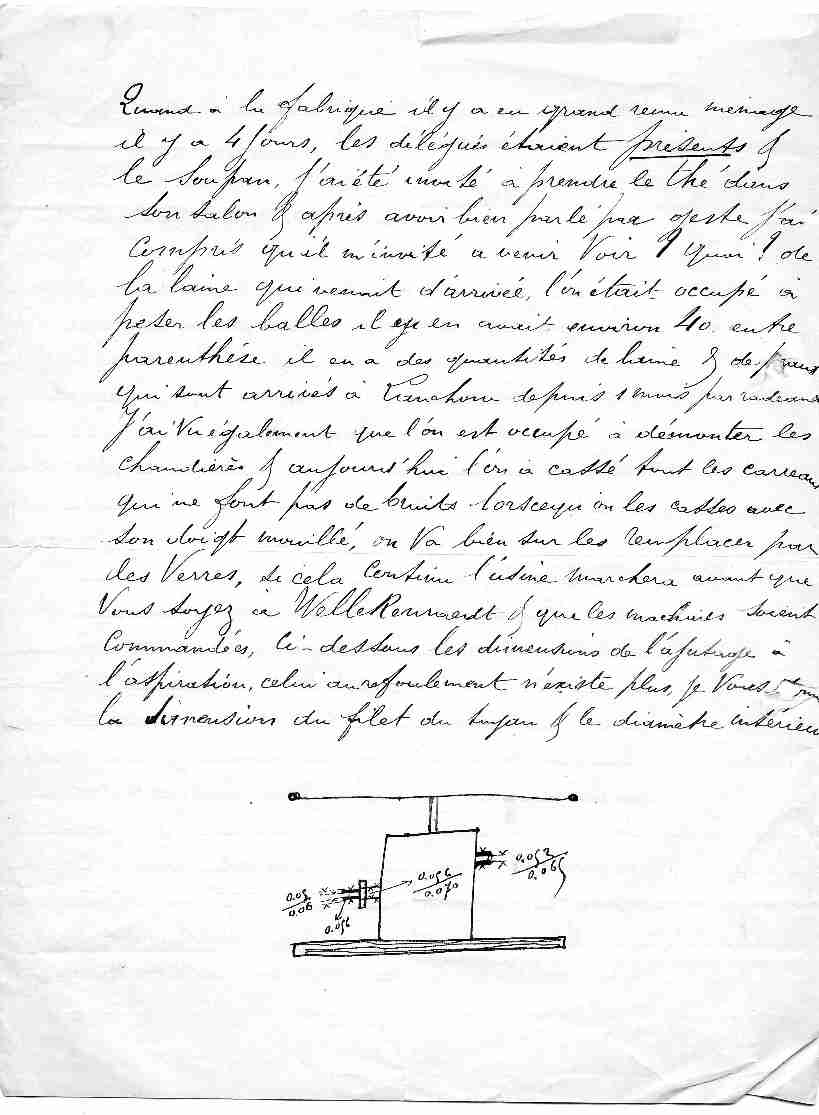 Quand à la fabrique il y a eu grand remu ménage
il y a 4 Jours, les délégués étaient présents &
le Soupan, J'ai été invité à prendre le thé dans
son salon & après avoir bien parlé par geste J'ai
compris qu'il m'invité a venir Voir ? Quoi ? de
la laine qui venait d'arrivée, l'on était occupé à
peser les balles il y en avait environ 40. entre
parenthése il en a des quantités de laine & de peaux
qui sont arrivés à Lanchow depuis 1 mois par radeaux
J'ai Vu également que l'on est occupé à démonter les
chaudières & aujourd'hui l'on à cassé tout les carreaux
qui ne font pas de bruits lorscequ'on les casses avec
son doigt mouillé, on Va bien sur les remplacer par
des Verres, si cela continu l'usine marchera avant que
Vous soyez à WelleKenraedt & que les machines soient
Commandées, Ci-dessous les dimensions de l'ajutage à
l'aspiration, celui au refoulement n'existe plus, je Vous
la dimension du filet du tuyau & le diamètre intérieur
0.052
0.065
0.056
0.070
0.05
0.06
0.056